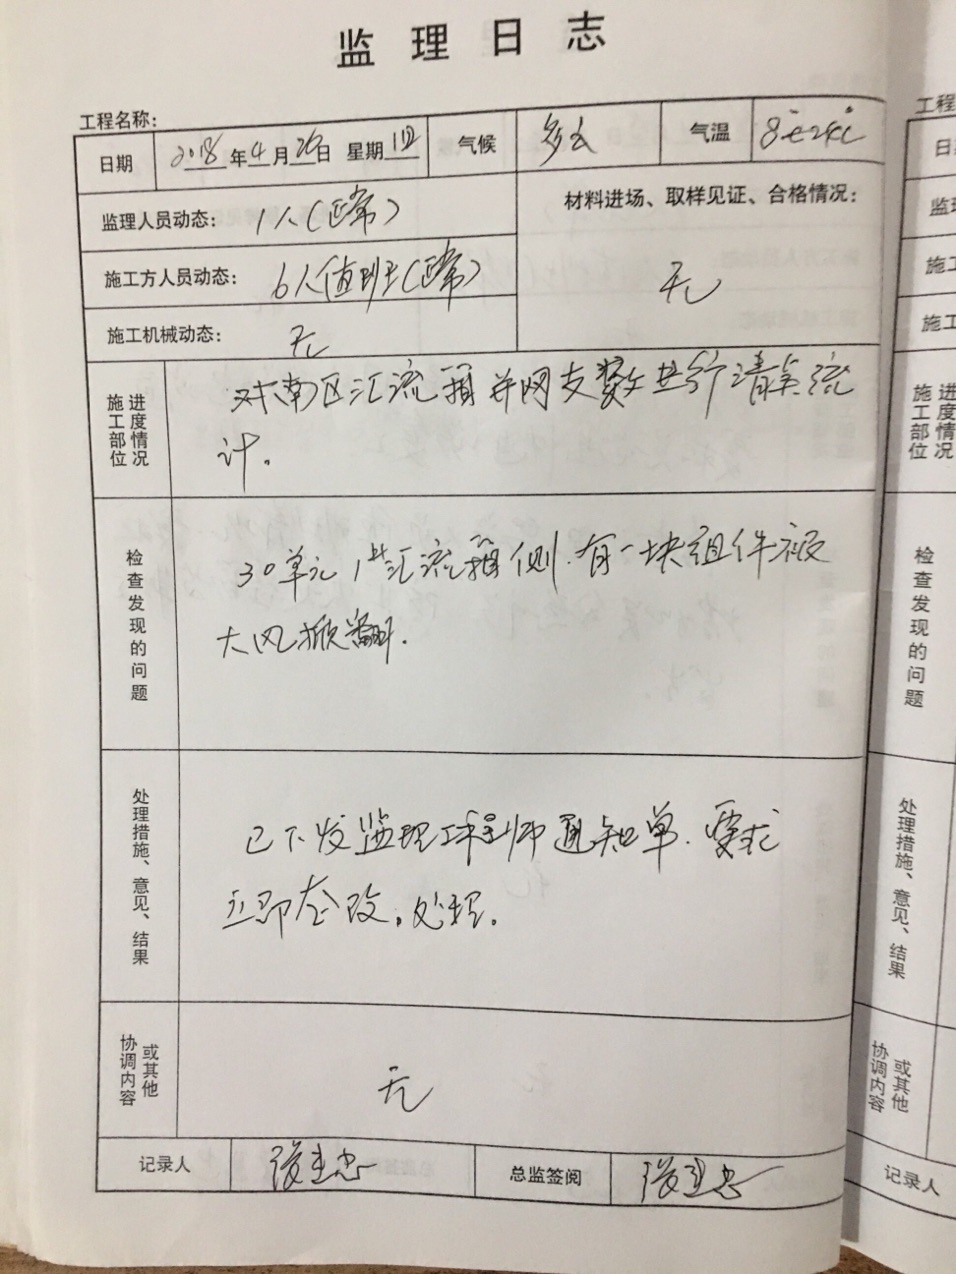 监理日志
工程名称：
日期 2018年4月26日 星期四 气候 多云 气温 8℃-24℃
监理人员动态： 1人（正常）
材料进场、取样见证、合格情况：
施工方人员动态： 6人值班（正常）
无
施工机械动态： 无
施工部位进度情况
对南区汇流箱并网支数进行清点统
计。
检查发现的问题
30单元1#汇流箱侧.有一块组件被
大风掀翻.
处理措施、意见、结果
已下发监理工程师通知单.要求
立即整改。处理。
协调内容或其他
无
记录人
总监签阅
工程
日
监
施工
施工
施工部位进度情况
检查发现的问题
处理措施、意见、结果
协调内容或其他
记录人